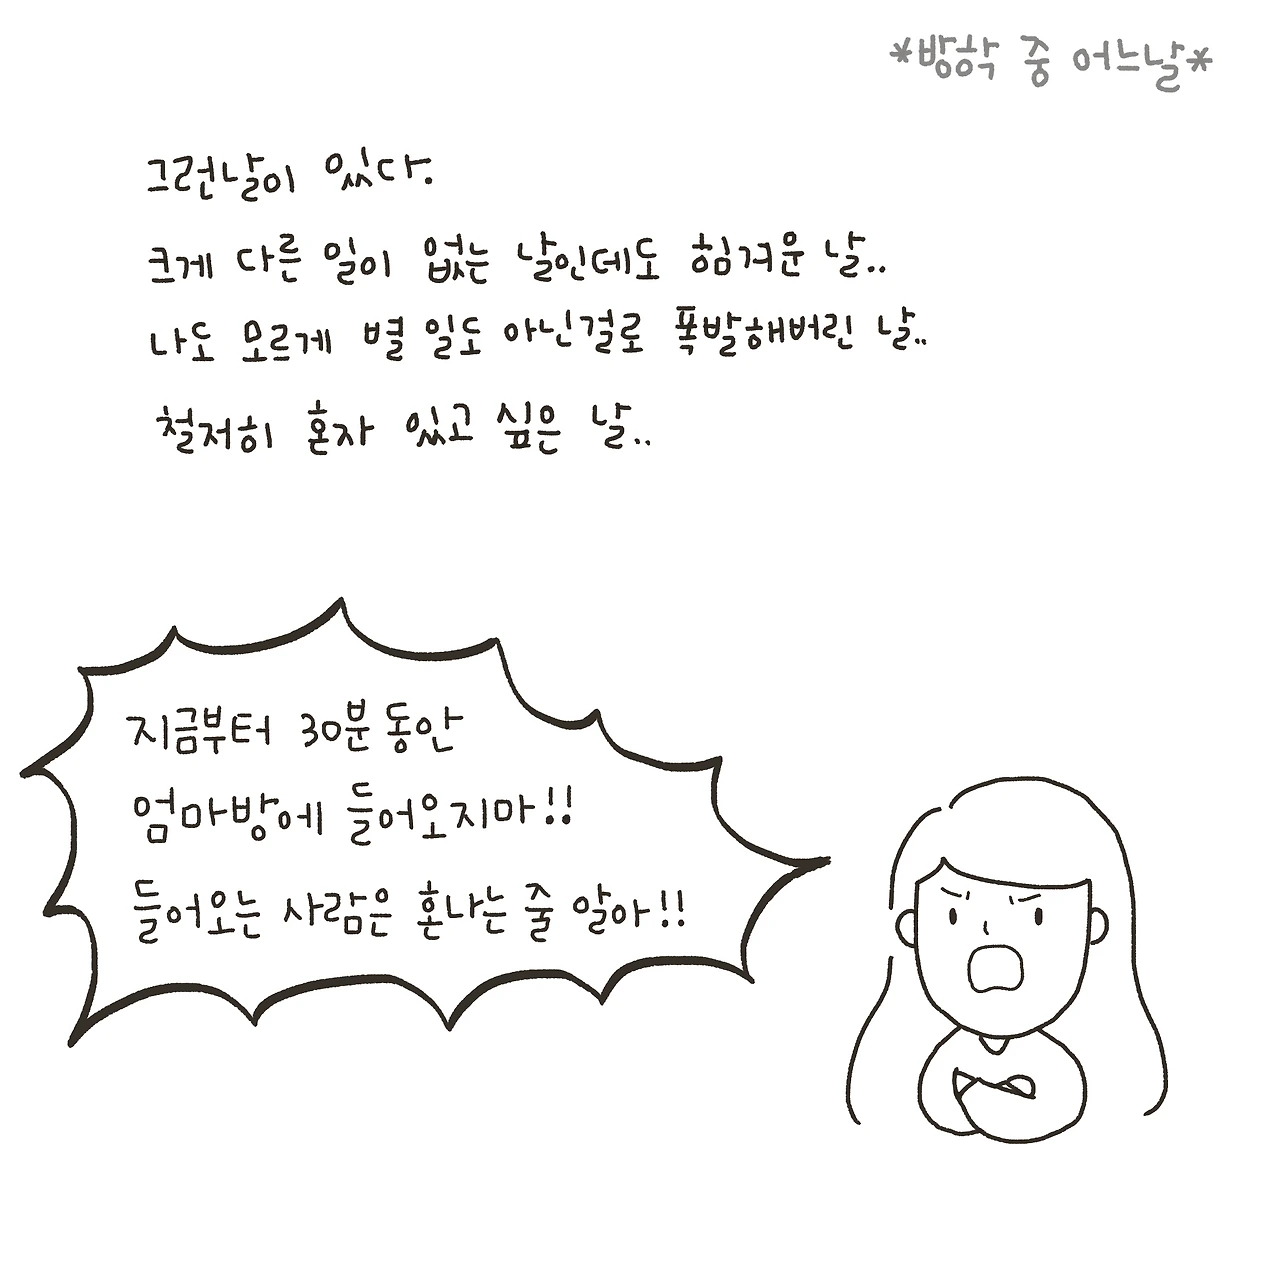 *방학 중 어느날*
그런날이 있다.
크게 다른 일이 없는 날인데도 힘겨운 날..
나도 모르게 별 일도 아닌걸로 폭발해버린 날..
철저히 혼자 있고 싶은 날..
지금부터 30분 동안
엄마방에 들어오지마!!
들어오는 사람은 혼나는 줄 알아!!